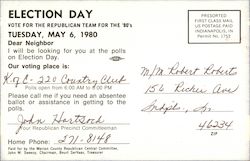 ELECTION DAY
VOTE FOR THE REPUBLICAN TEAM FOR THE '80's
TUESDAY, MAY 6, 1980
Dear Neighbor
I will be looking for you at the polls
on Election Day.
Our voting place is:
K of C - 220 Country Club
Polls open from 6:00 AM to 6:00 PM
Please call me if you need an absentee
ballot or assistance in getting to the
polls.
John Hartsock
Your Republican Precinct Committeeman
Home Phone: 271-8148
Paid for by the Marion County Republican Central Committee,
John W. Sweezy, Chairman,
PRESORTED
FIRST CLASS MAIL
US POSTAGE PAID
INDIANAPOLIS, IN
Permit No.
M/M Robert Roberts
156 Richer Ave
Indpls,
46234
ZIP